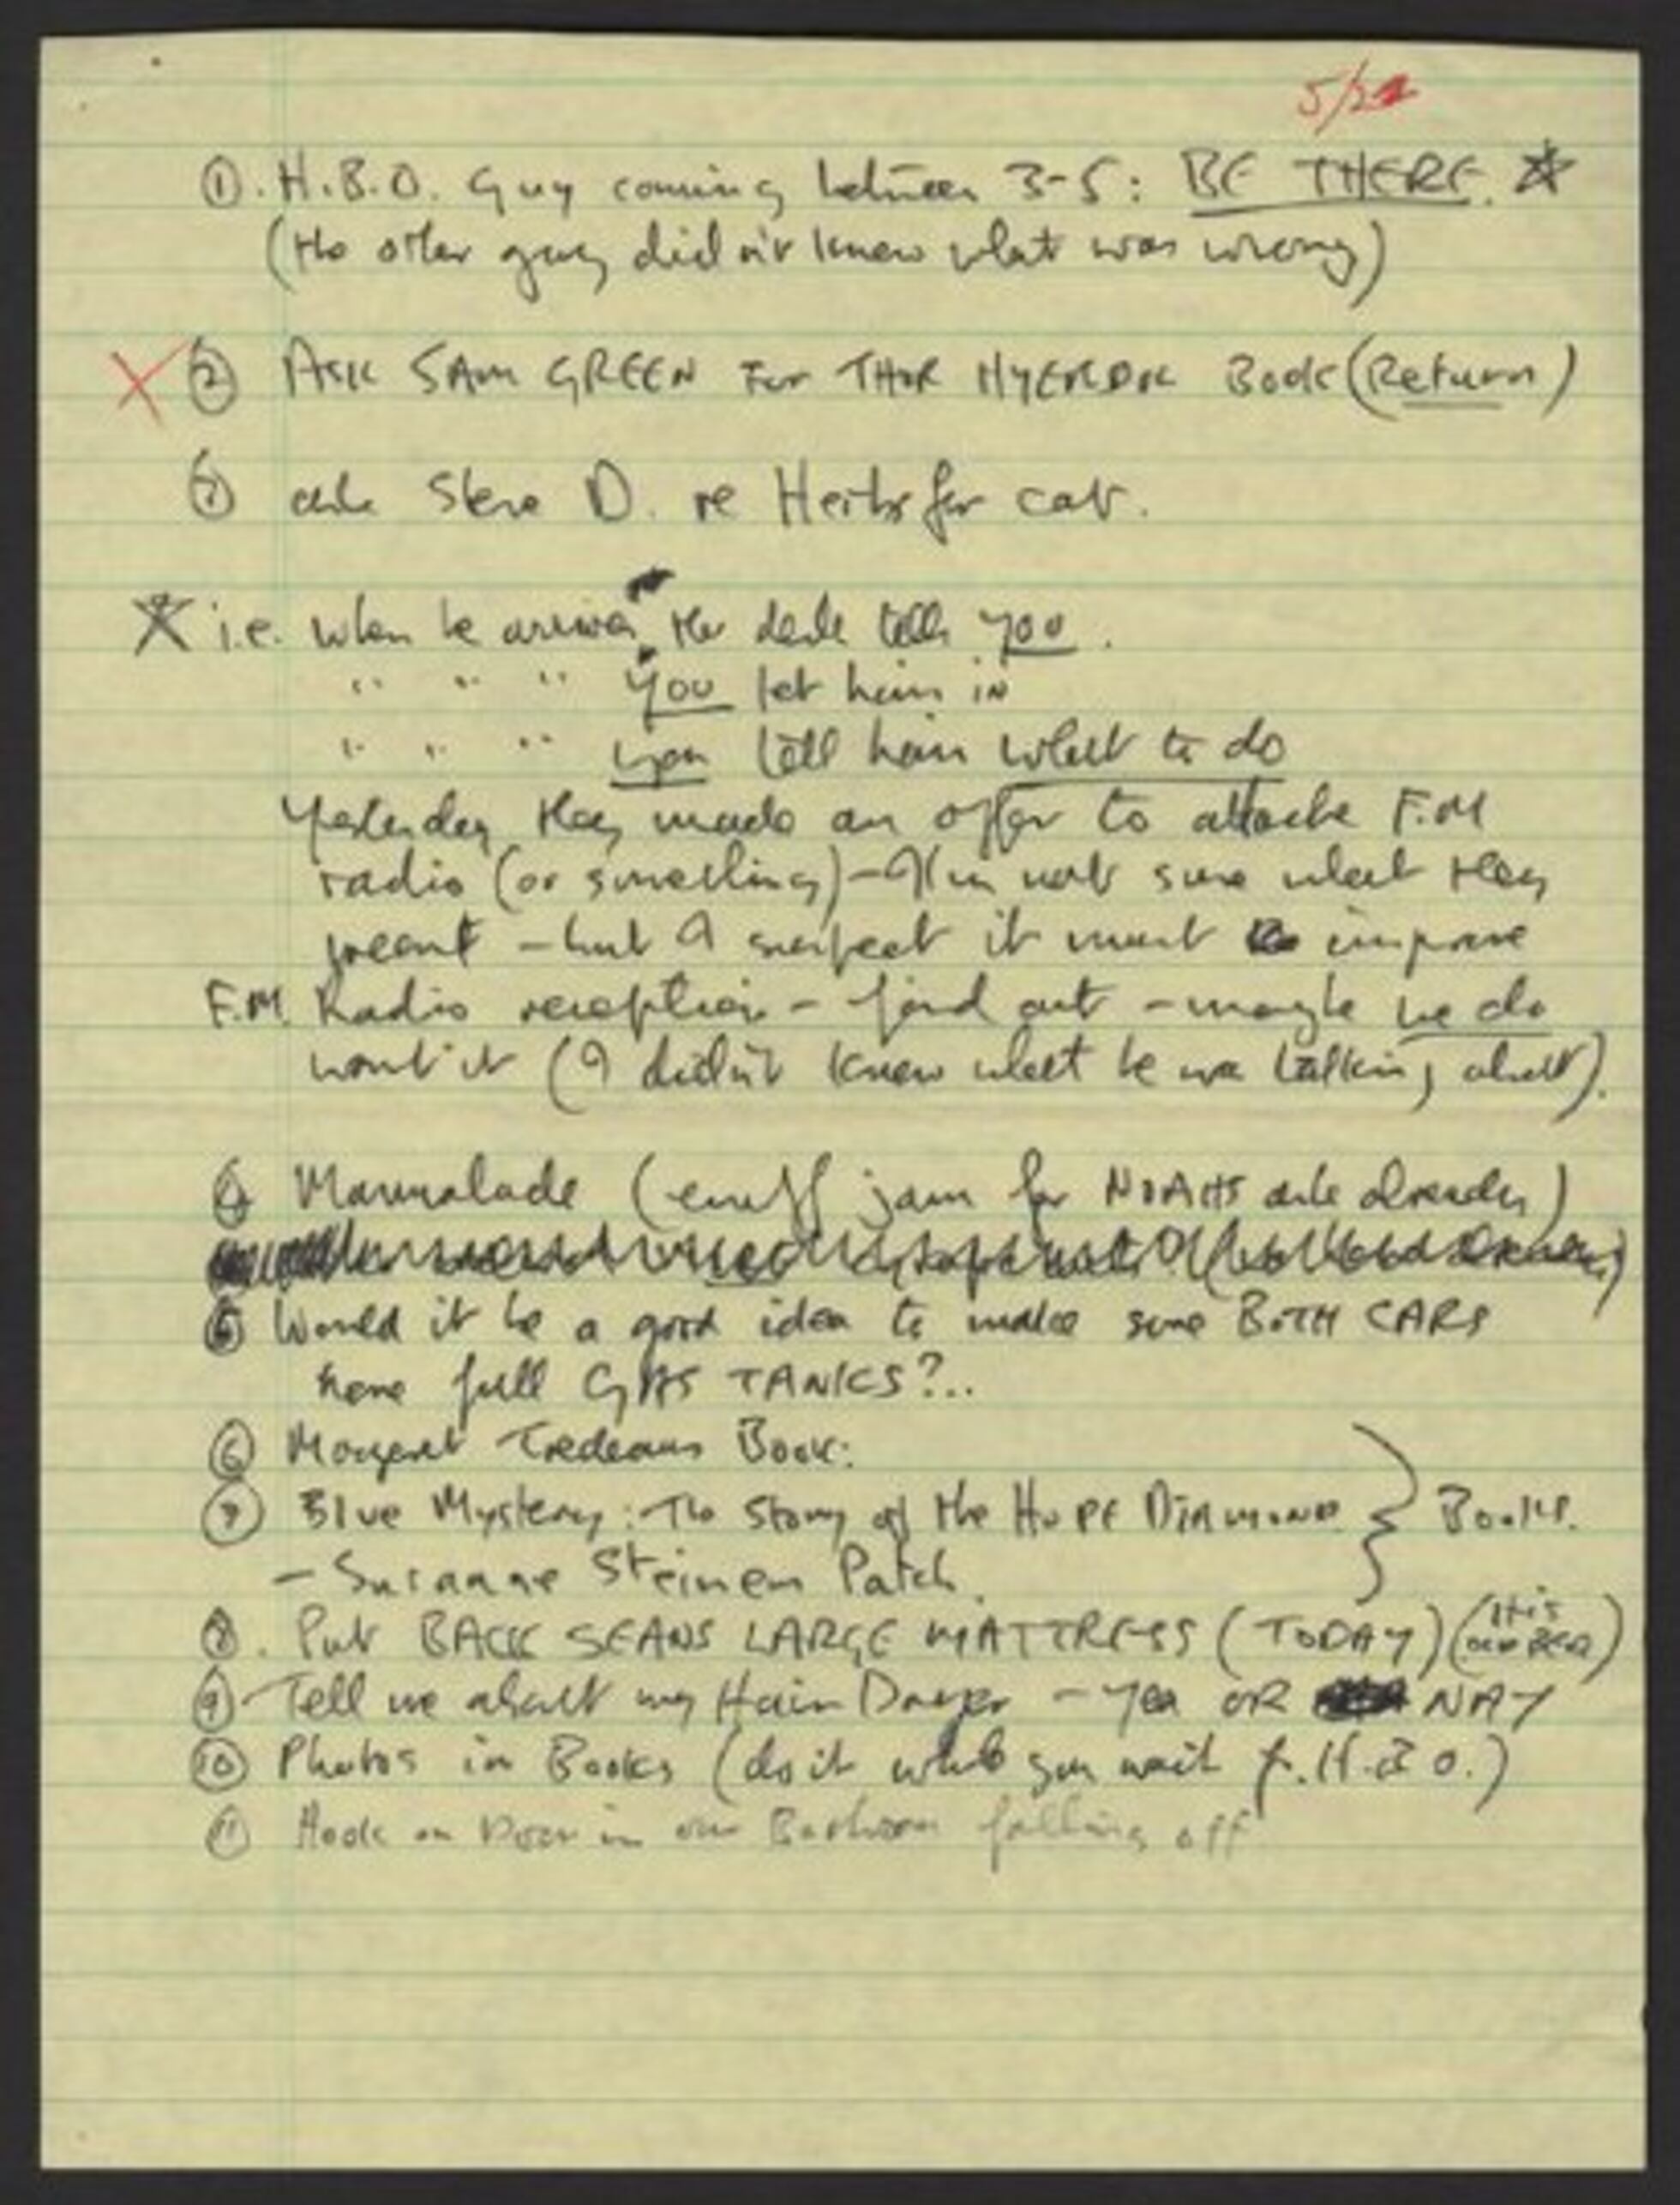 5/21
① . H.B.O. Guy coming between 3-5: BE THERE. ☆
(the other guy didn't know what was wrong)
X ② ASK SAM GREEN For THOR HYERDK Book (Return)
③ ask Steve D. re Herbs for cat.
☆ i.e. when he arrives the desk tells you.
" " " you let him in
" " " you tell him what to do
Yesterday they made an offer to attache F.M
radio (or something) – I'm not sure what they
meant – but I suspect it must improve
F.M. Radio reception – find out – maybe we do
want it (I didn't know what he was talking about).
④ Marmalade (enuff jam for NOAHS ark already)
⑤ Would it be a good idea to make sure BOTH CARS
have full GAS TANKS?..
⑥ Margaret Tredeaus Book:
⑦ Blue Mystery: The Story of the HOPE DIAMOND } Books.
– Susanne Steinem Patch.
⑧ . Put BACK SEANS LARGE MATTRESS (TODAY) (HIS own BED)
⑨ Tell me about my Hair Dryer – Yea OR NAY
⑩ Photos in Books (do it while you wait f. H.B.O.)
⑪ Hook on Door in our Bathroom falling off